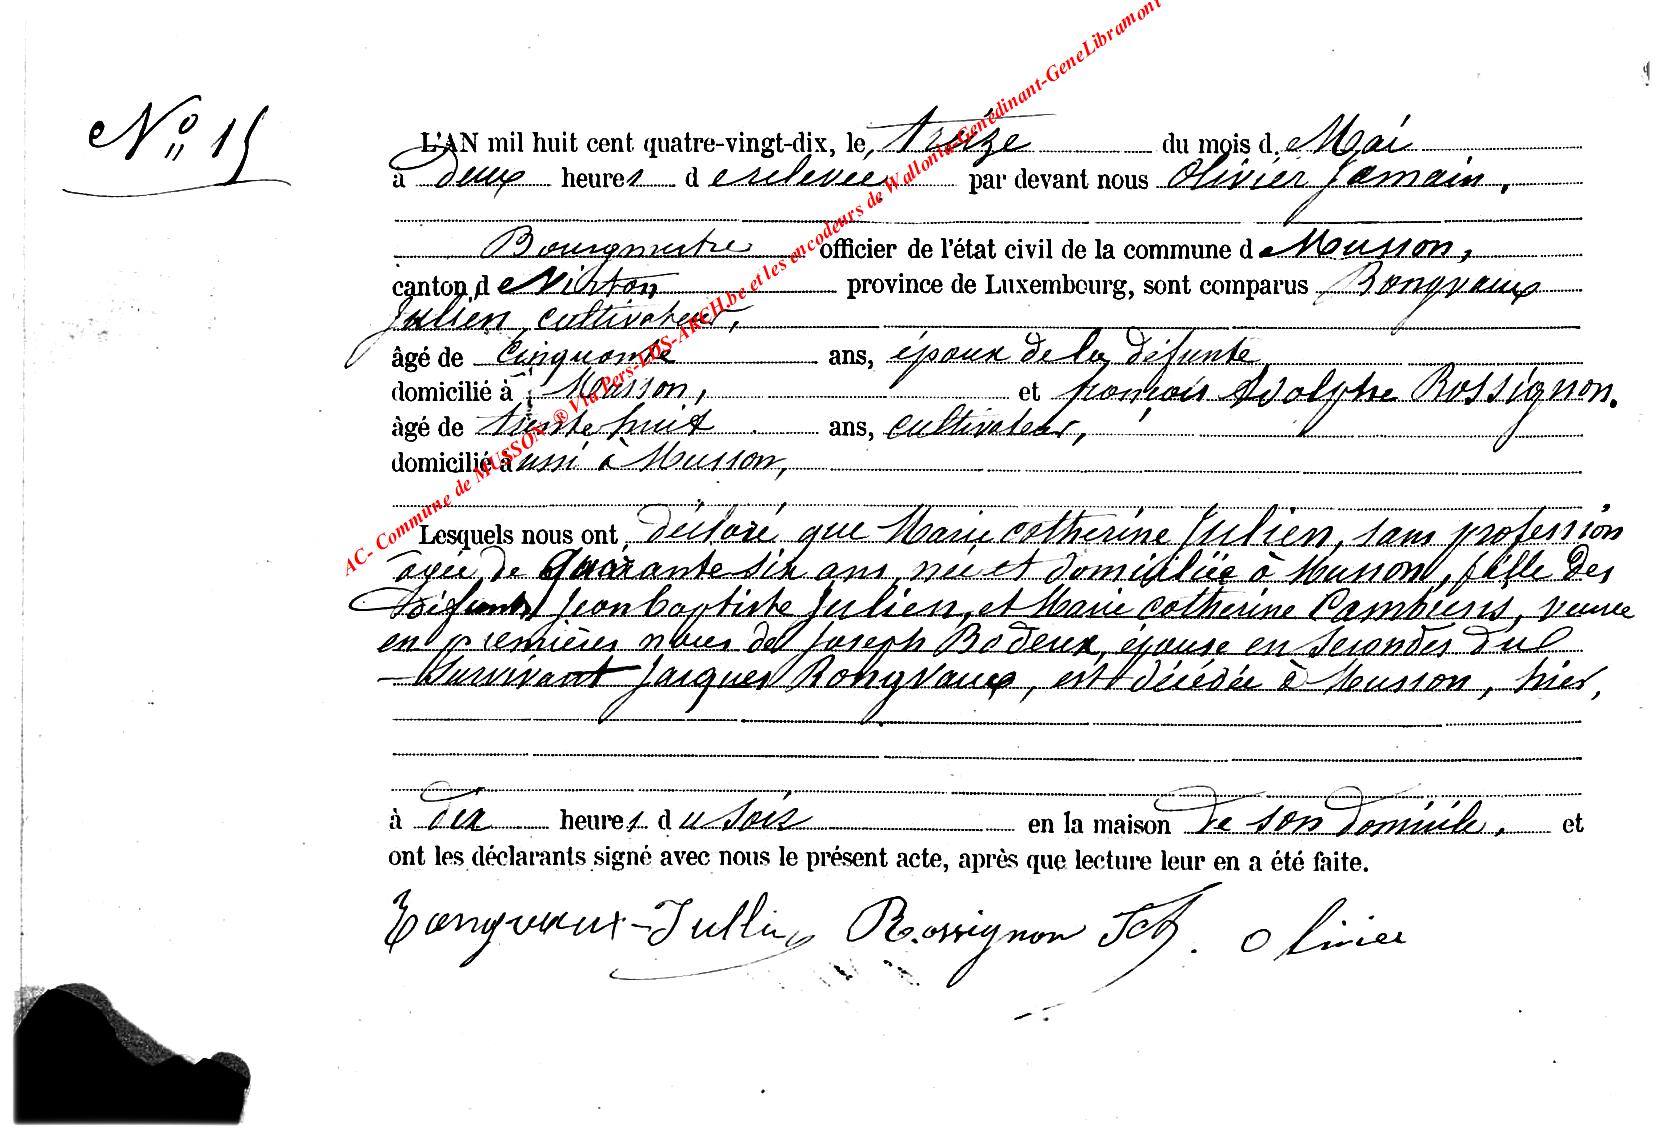 N° 15
L'AN mil huit cent quatre-vingt-dix, le, treize du mois d. Mai
à deux heures d e relevée par devant nous Olivier Jamain,
Bourgmestre officier de l'état civil de la commune d e Musson,
canton d e Virton province de Luxembourg, sont comparus Rongvaux
Julien, cultivateur,
âgé de cinquante ans, époux de la défunte
domicilié à Musson, et françois Adolphe Rossignon.
âgé de trente huit ans, cultivateur,
domicilié aussi à Musson,
Lesquels nous ont déclaré que Marie Catherine Julien, sans profession
agée de quarante six ans, née et domiciliée à Musson, fille des
défunts Jean Baptiste Julien, et Marie Catherine Camburis, veuve
en premières noces de Joseph Bodeux, épouse en secondes du
survivant Jacques Rongvaux, est décédée à Musson, hier,
à dix heures d u soir en la maison de son domicile, et
ont les déclarants signé avec nous le présent acte, après que lecture leur en a été faite.
Rongvaux-Jullien Rossignon Olivier
AC- Commune de MUSSON ® Via Pers-LDS-ARCH.be et les encodeurs de Wallonia-Genedinant-GeneLibramont